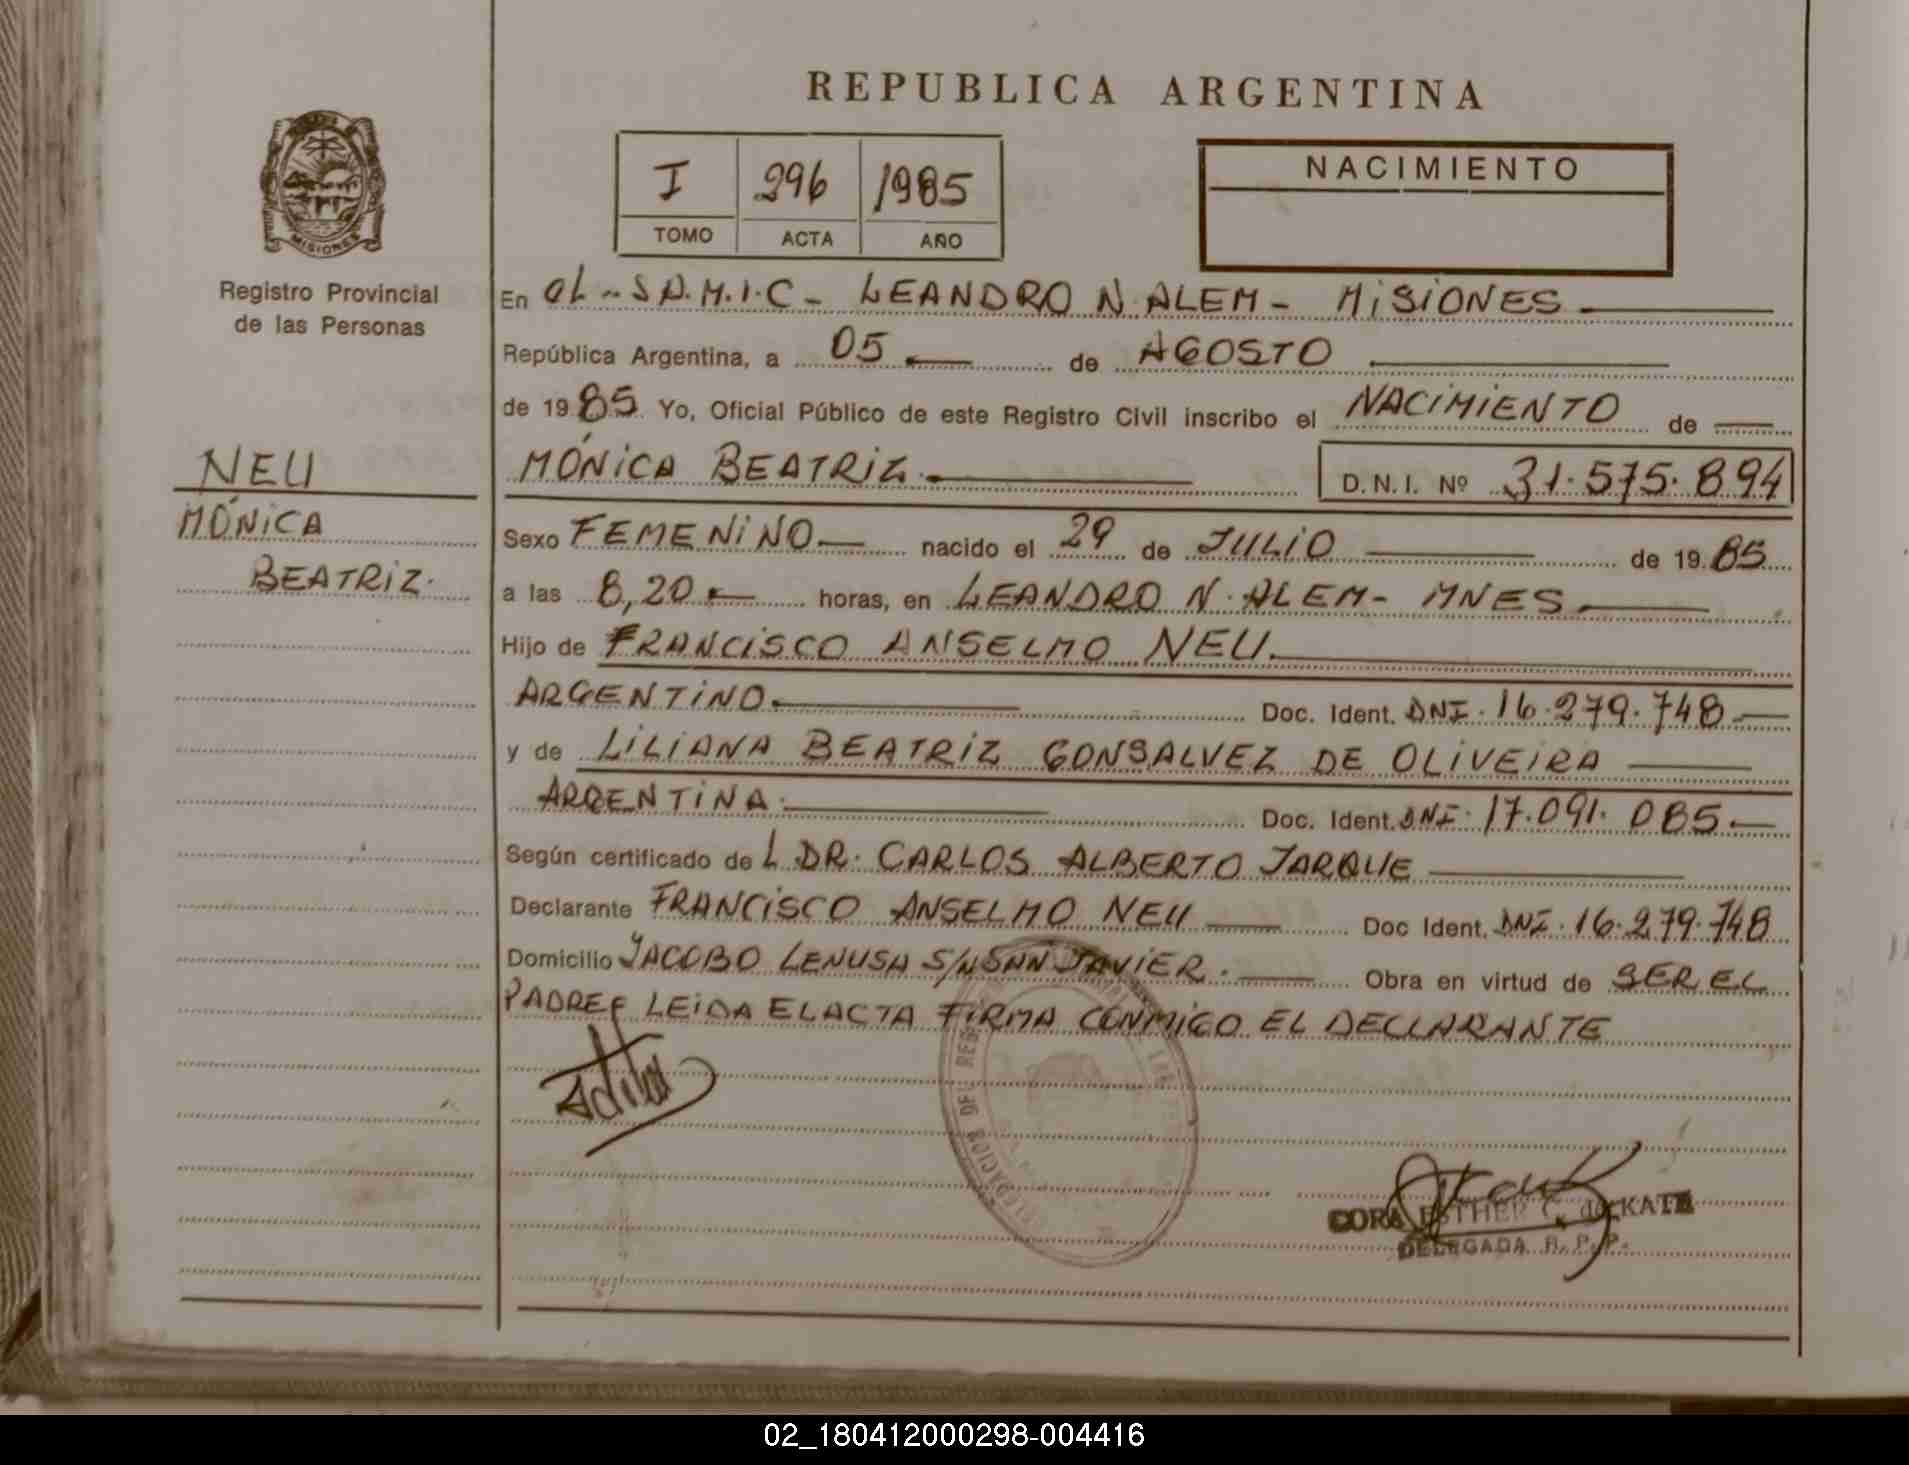 REPUBLICA ARGENTINA
MISIONES
Registro Provincial
de las Personas
I 296 1985
TOMO ACTA AÑO
NACIMIENTO
En OL-S.A.M.I.C- LEANDRO N. ALEM- MISIONES
República Argentina, a 05 de AGOSTO
de 1985 Yo, Oficial Público de este Registro Civil inscribo el NACIMIENTO de
MÓNICA BEATRIZ. D.N.I. Nº 31.575.894
NEU
MÓNICA
BEATRIZ.
Sexo FEMENINO nacido el 29 de JULIO de 1985
a las 8,20 horas, en LEANDRO N. ALEM- MNES
Hijo de FRANCISCO ANSELMO NEU.
ARGENTINO Doc. Ident. DNI. 16.279.748
y de LILIANA BEATRIZ GONSALVEZ DE OLIVEIRA
ARGENTINA. Doc. Ident. DNI. 17.091.085.
Según certificado de L DR. CARLOS ALBERTO JARQUE
Declarante FRANCISCO ANSELMO NEU Doc Ident. DNI. 16.279.748
Domicilio JACOBO LENUSA S/N SAN JAVIER. Obra en virtud de SER EL
PADRE LEIDA EL ACTA FIRMA CONMIGO EL DECLARANTE
ESTHER C.
DELEGADA R.P.P.
02_180412000298-004416